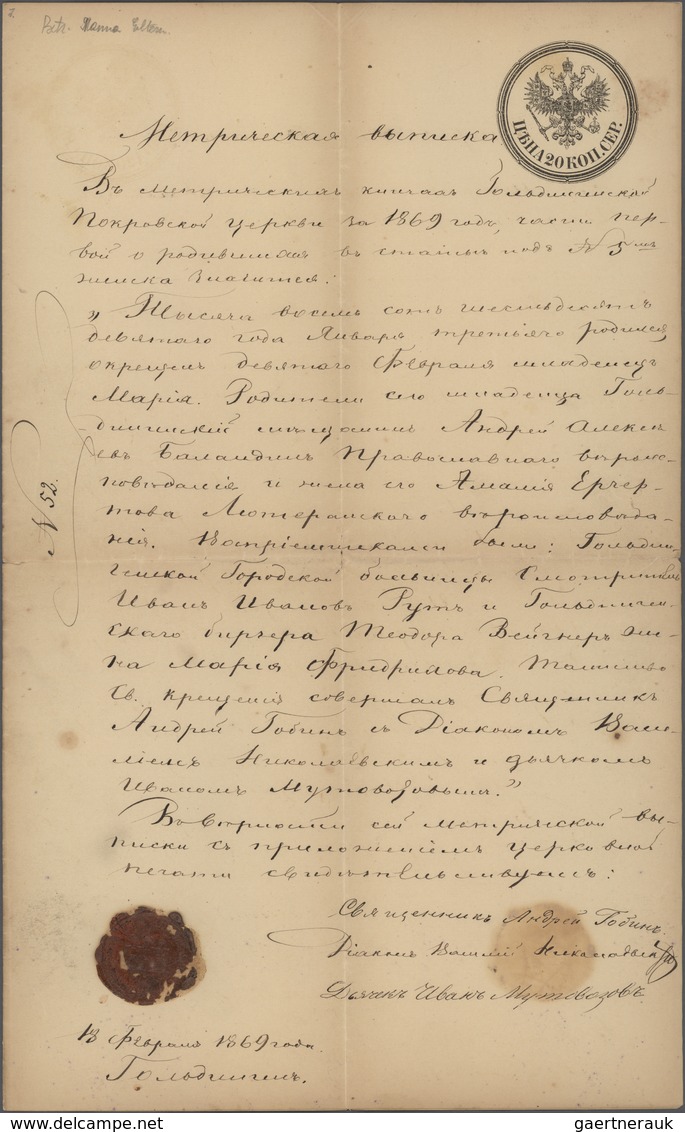 Betr. Mama Eltern.
ЦѢНА 20 КОП. СЕР.
Метрическая выписка
Въ метрическихъ книгахъ Гольдингенской
Покровской церкви за 1869 годъ, части пер-
вой о родившихся въ статьѣ подъ N 5мъ
женска значится:
„Тысяча восемь сотъ шестьдесятъ
девятаго года Января третьяго родилася
окрещенъ девятаго Февраля младенецъ
Марія. Родители сего младенца Голь-
дингенскій мѣщанинъ Андрей Алексѣ-
евъ Баландинъ Православнаго вѣроис-
повѣданія и жена его Амалія
Лютеранскаго вѣроисповѣда-
нія. Воспріемниками были: Гольдин-
генской Городской больницы Смотритель
Иванъ Ивановъ Рутъ и Гольдинген-
скаго биргера Теодора Вейгнеръ же-
на Марія Фридрихова. Таинство
Св. крещенія совершалъ Священникъ
Андрей Гобинъ съ Діакономъ Васи-
ліемъ и дьячкомъ
Иваномъ Мутовозовымъ.”
Въ вѣрности сей метрической вы-
писки съ приложеніемъ церковной
печати свидѣтельствуемъ:
Священникъ Андрей Гобинъ.
Діаконъ Василій
Дьячекъ Иванъ Мутовозовъ.
N 52.
13 Февраля 1869 года.
Гольдингенъ.
gaertnerauk